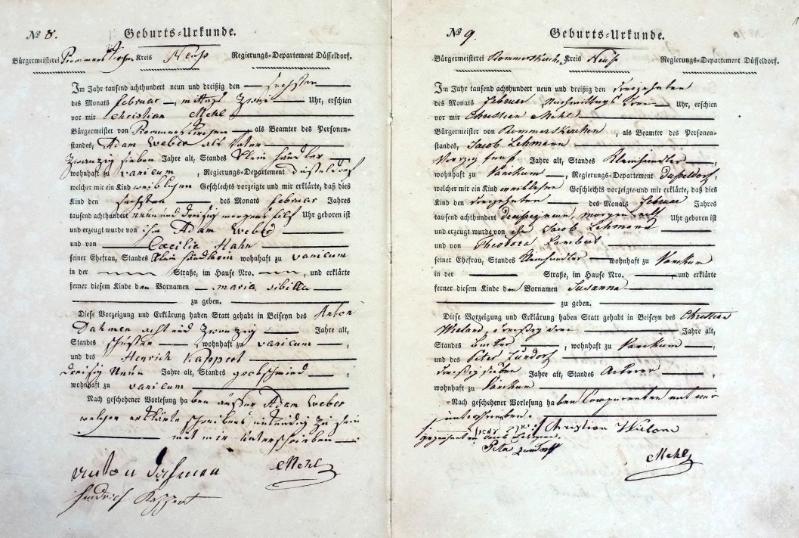 No 8. Geburts-Urkunde.
Bürgermeisterei Rommerskirchen Kreis Neuß Regierungs-Departement Düsseldorf.
Im Jahr tausend achthundert neun und dreißig den sechsten
des Monats februar mittags zwei Uhr, erschien
vor mir Christian Mehl
Bürgermeister von Rommerskirchen als Beamter des Personen-
standes, Adam Weber als Vater
zwanzig sieben Jahre alt, Standes Kleinhändler
wohnhaft zu vanicum, Regierungs-Departement Düsseldorf
welcher mir ein Kind weiblichen Geschlechts vorzeigte und mir erklärte, daß dies
Kind den sechsten des Monats februar Jahres
tausend achthundert neun und dreisig morgens Uhr geboren ist
und erzeugt wurde von ihm Adam Weber
und von Caecilia Hahn
seiner Ehefrau, Standes wohnhaft zu vanicum
in der Straße, im Hause Nro. und erklärte
ferner diesem Kinde den Vornamen maria sibilla
zu geben.
Diese Vorzeigung und Erklärung haben Statt gehabt in Beiseyn des Anton
Dahmen acht und zwanzig Jahre alt,
Standes wohnhaft zu vanicum
und des Henrich Kappert
dreisig neun Jahre alt, Standes grobschmied
wohnhaft zu vanicum
Nach geschehener Vorlesung haben außer Adam Weber
welcher erklärte schreibens unkundig zu sein
mit mir unterschrieben
anton Dahmen Mehl
Hendrich Kappert
No 9. Geburts-Urkunde.
Bürgermeisterei Rommerskirchen Kreis Neuß Regierungs-Departement Düsseldorf.
Im Jahr tausend achthundert neun und dreißig den dreizehnten
des Monats Februar Nachmittags drei Uhr, erschien
vor mir Christian Mehl
Bürgermeister von Rommerskirchen als Beamter des Personen-
standes, Jacob Lehmann
vierzig fünf Jahre alt, Standes Kleinhändler
wohnhaft zu Vanikum, Regierungs-Departement Düsseldorf,
welcher mir ein Kind weiblichen Geschlechts vorzeigte und mir erklärte, daß dies
Kind den dreizehnten des Monats Februar Jahres
tausend achthundert dreißig neun morgens Uhr geboren ist
und erzeugt wurde von ihm Jacob Lehmann
und von Theodora Lambert
seiner Ehefrau, Standes Kleinhändler wohnhaft zu Vanikum
in der Straße, im Hause Nro. und erklärte
ferner diesem Kinde den Vornamen Susanna
zu geben.
Diese Vorzeigung und Erklärung haben Statt gehabt in Beiseyn des Christian
Wieland, dreißig drei Jahre alt,
Standes wohnhaft zu Vanikum
und des Peter Zündorf
dreißig sieben Jahre alt, Standes Ackerer
wohnhaft zu Vanikum
Nach geschehener Vorlesung haben Comparenten mit mir
unterschrieben.
Christian Wieland
Peter Zündorf
Mehl